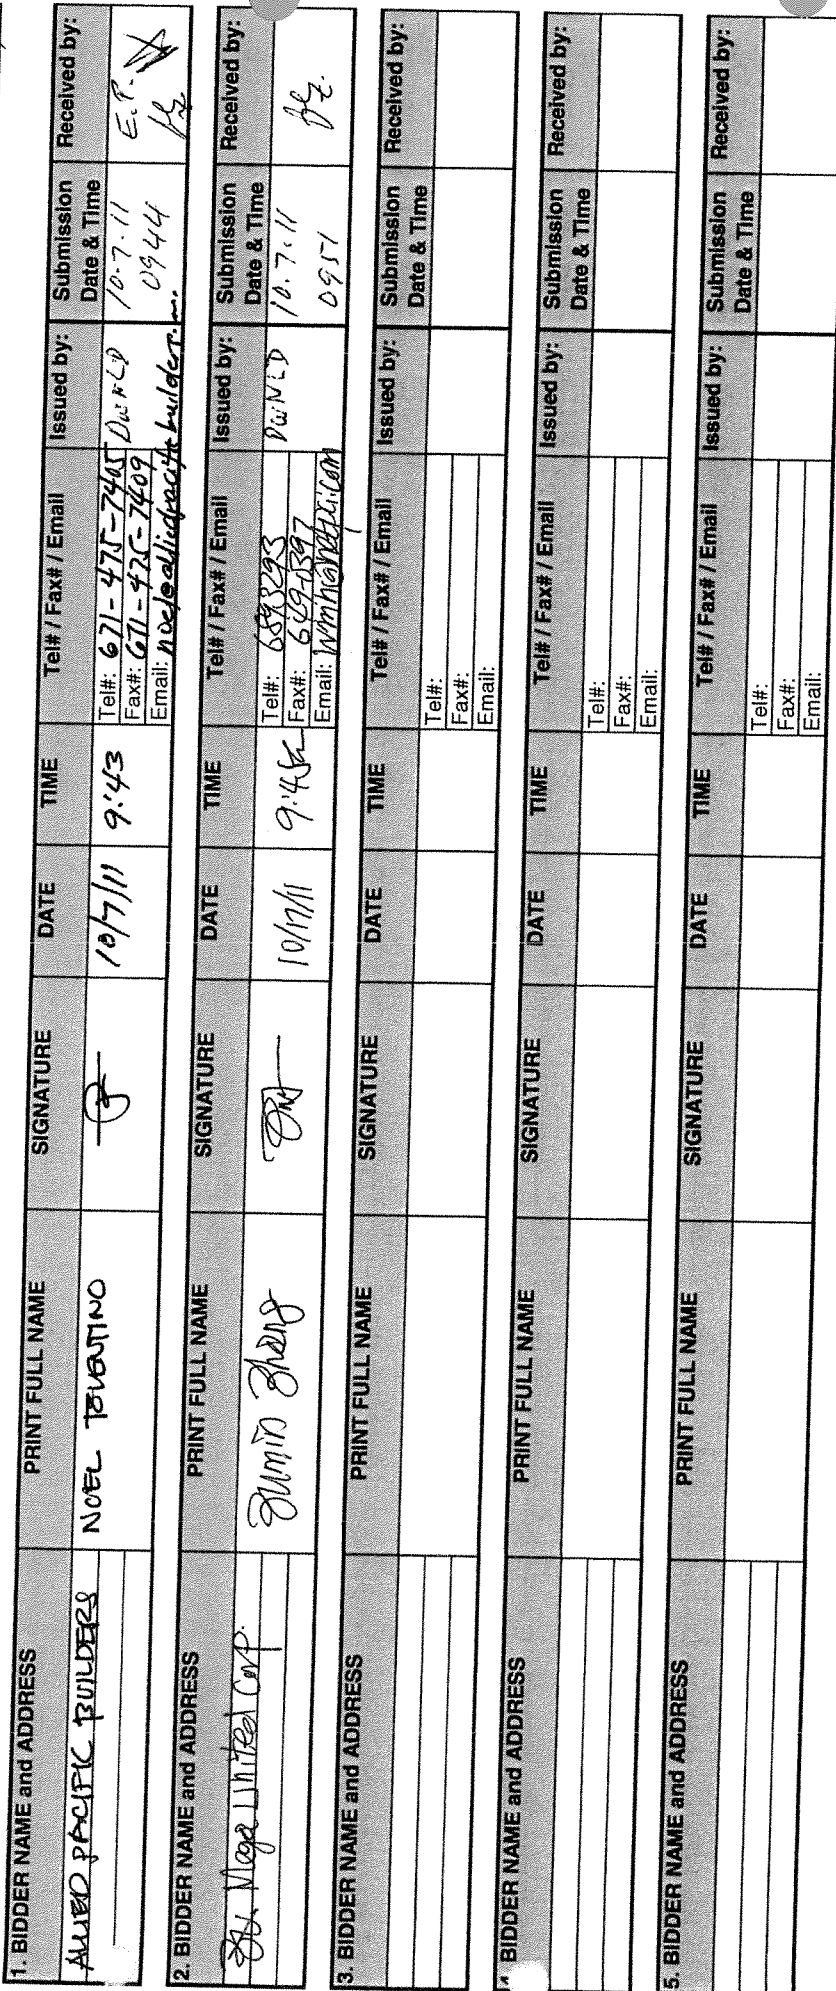 1. BIDDER NAME and ADDRESS PRINT FULL NAME SIGNATURE DATE TIME Tel# / Fax# / Email Issued by: Submission Date & Time Received by:
ALLIED PACIFIC BUILDERS NOEL 10/7/11 9:43 Tel#: 671-475-7405 DWNLD 10.7.11 E.P.
Fax#: 671-475-7409 0944
Email:
2. BIDDER NAME and ADDRESS PRINT FULL NAME SIGNATURE DATE TIME Tel# / Fax# / Email Issued by: Submission Date & Time Received by:
Mega United Corp. Zhang 10/7/11 Tel#: DWNLD 10.7.11
Fax#: 0951
Email:
3. BIDDER NAME and ADDRESS PRINT FULL NAME SIGNATURE DATE TIME Tel# / Fax# / Email Issued by: Submission Date & Time Received by:
Tel#:
Fax#:
Email:
BIDDER NAME and ADDRESS PRINT FULL NAME SIGNATURE DATE TIME Tel# / Fax# / Email Issued by: Submission Date & Time Received by:
Tel#:
Fax#:
Email:
5. BIDDER NAME and ADDRESS PRINT FULL NAME SIGNATURE DATE TIME Tel# / Fax# / Email Issued by: Submission Date & Time Received by:
Tel#:
Fax#:
Email: